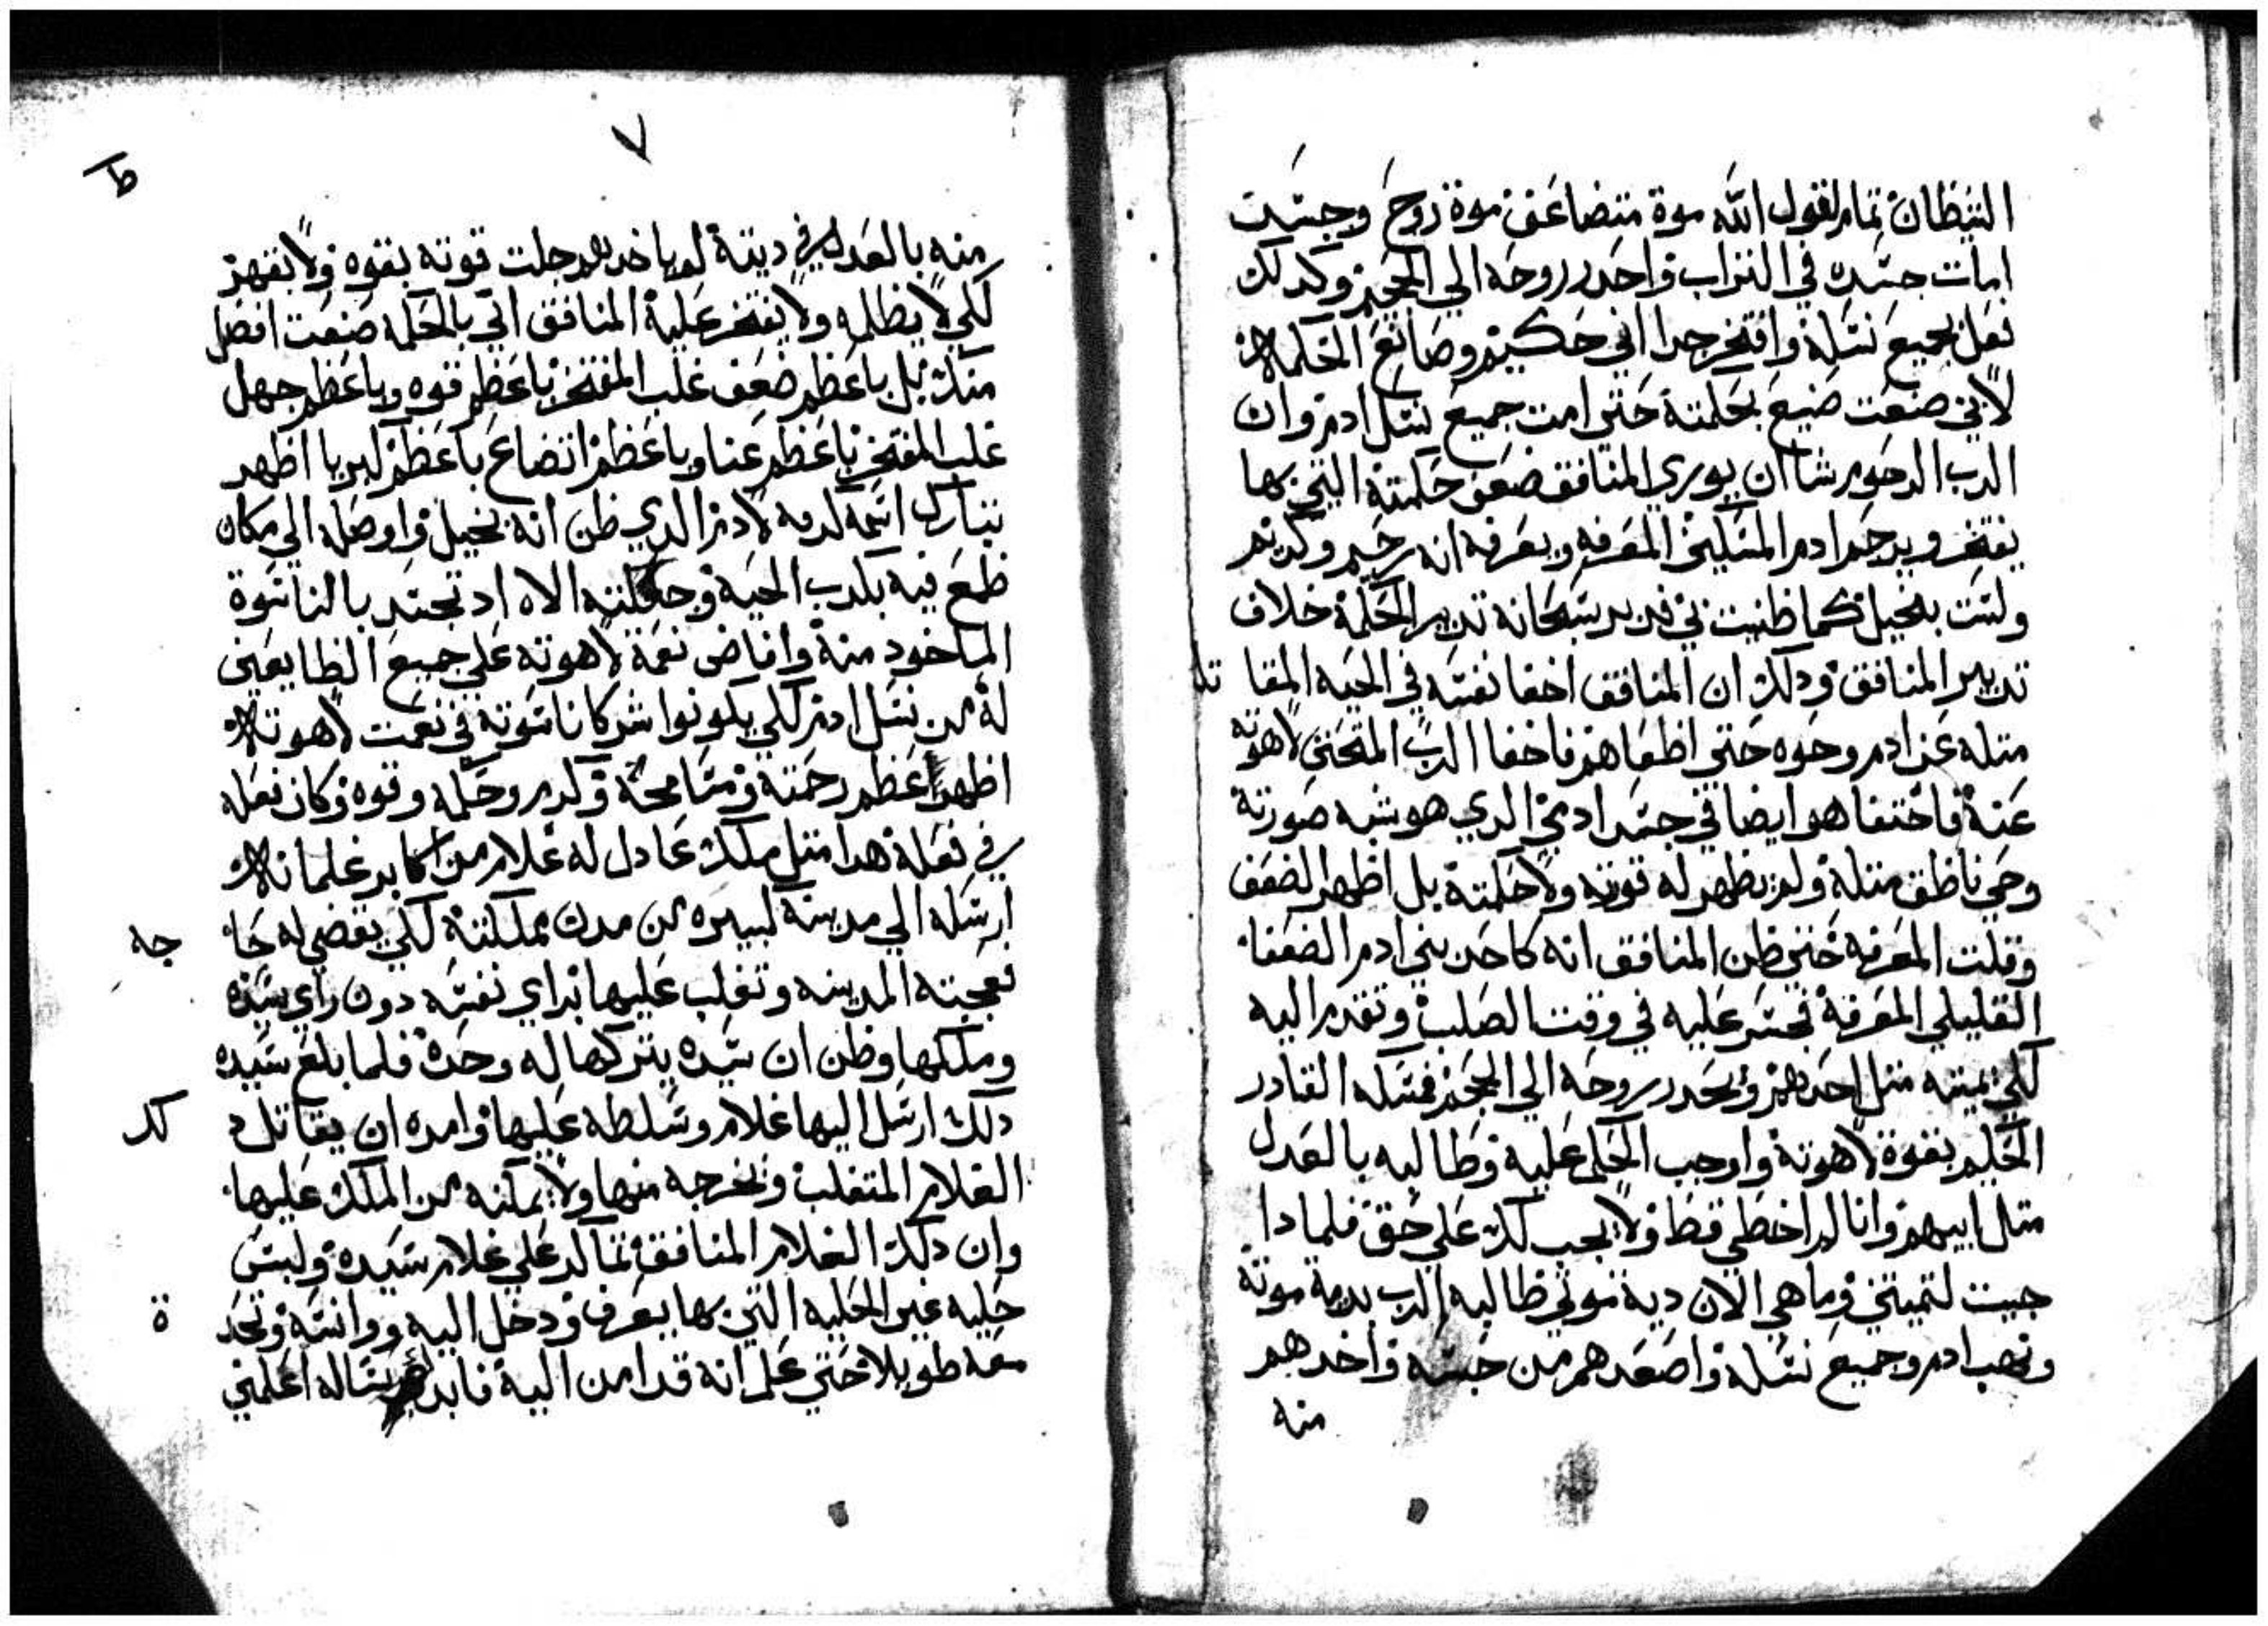 الشيطان تمام لقول الله موة متضاعف موة روح وجسد
امات جسده في التراب واحدر روحه الي الجحيم وكدلك
فعل بجميع نسله وافتخر جدا اني حكيم وصانع الحكمه
لاني صنعت صنيع بحكمته حتي امت جميع نسل ادم وان
الرب الرحوم شا ان يوري المنافق ضعف حكمته التي بها
يفتخر ويرحم ادم المسكين المعرفه ويعرفه انه رحيم وكريم
ولست بخيل كما ظنيت ني فدبر سبحانه تدبير الحكمة خلاف
تدبير المنافق ودلك ان المنافق اخفا نفسه في الحيه المقا تله
متله عن ادم وحوه حتي اطغاهم فاخفا الرب المتحنن لاهوته
عنه فاختفا هو ايضا في جسد ادمي الدي هو شبه صورته
وحي ناطق متله ولم يظهر له قوته ولا حكمته بل اظهر الضعف
وقلت المعرفه حتي ظن المنافق انه كاحد بني ادم الضعفا
القليلي المعرفة فجسر عليه في وقت الصلب وتقدم اليه
لكي يميته متل احدهم ويحدر روحه الي الجحيم فمسكه القادر
الحكيم بقوة لاهوته واوجب الحكم عليه وطالبه بالعدل
متل ابيهم وانا لم اخطي قط ولا يجب لك علي حق فلمادا
جيت لتميتني وما هي الان دية موتي طالبه الرب بدية موته
ونهب ادم وجميع نسله واصعدهم من حبسه واخدهم
منه
٧
ط
منه بالعدل في ديته لم ياخدهم جلت قوته بقوه ولا بقهر
لكي لا يظلمه ولا يفتخر عليه المنافق اني بالحكمه صنعت افضل
منك بل باعظم ضعف غلب المفتخر باعظم قوه وباعظم جهل
غلب المفتخر باعظم غنا وباعظم اتضاع باعظم كبريا اظهر
تبارك اسمه كرمه لادم الدي ظن انه بخيل واوصله الي مكان
طمع فيه بكدب الحيه وجعلته الاه اد تجسد بالناسوة
الماخود منه وافاض نعمة لاهوته علي جميع الطايعين
له من نسل ادم لكي يكونوا شركا ناسوته في نعمت لاهوته
اظهر اعظم رحمته ومسامحة وكرم وحكمه وقوه وكان فعله
في فعله هدا متل ملك عادل له غلام من اكابر غلمانه
ارسله الي مدينه كبيره من مدن مملكته لكي يقضي له حا جه
فعجبته المدينه وتغلب عليها براي نفسه دون راي سيده
وملكها وظن ان سيده يتركها له وحده فلما بلغ سيده
دلك ارسل اليها غلام وسلطه عليها وامره ان يقاتل د لك
الغلام المتغلب ويخرجه منها ولا يمكنه من الملك عليها
وان دلك الغلام المنافق تماكر علي غلام سيده ولبس
حليه غير الحليه التي بها يعرف ودخل اليه ووانسه وتحد ة
معه طويلا حتي علم انه قد امن اليه فابدا يساله اعلمني